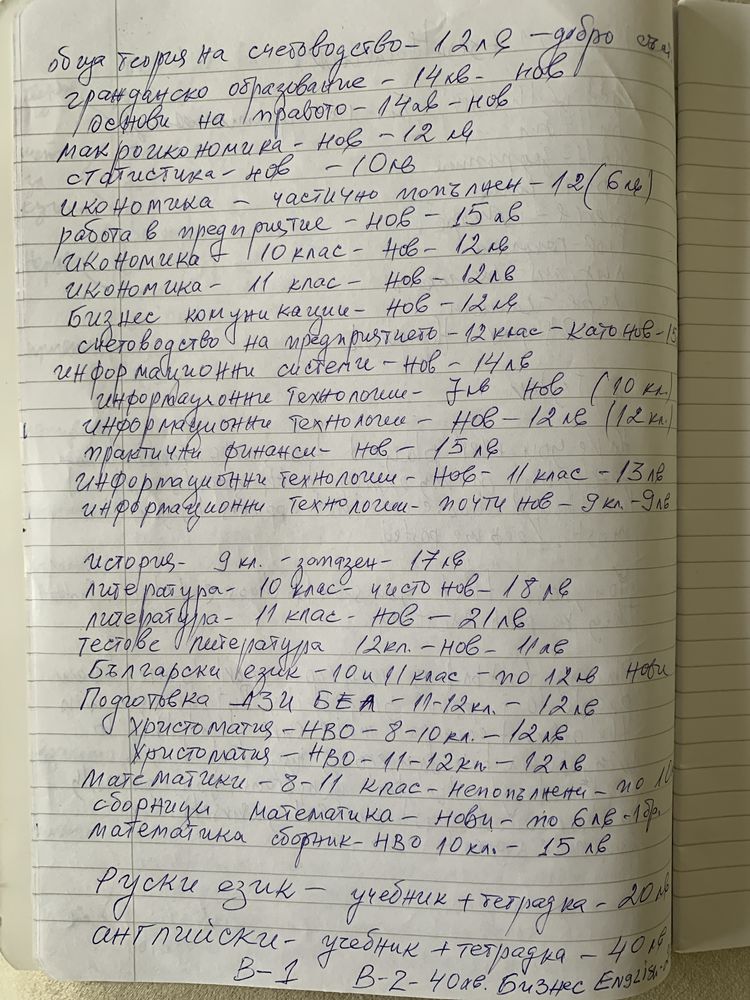 обща теория на счетоводство - 12 лв - добро
гражданско образование - 14 лв - нов
основи на правото - 14 лв - нов
макроикономика - нов - 12 лв
статистика - нов - 10 лв
икономика - частично попълнен - 12 (6 лв)
работа в предприятие - нов - 15 лв
икономика - 10 клас - нов - 12 лв
икономика - 11 клас - нов - 12 лв
Бизнес комуникации - нов - 12 лв
счетоводство на предприятието - 12 клас - като нов - 15
информационни системи - нов - 14 лв
информационни технологии - 7 лв нов (10 кл.)
информационни технологии - нов - 12 лв (12 кл.)
практични финанси - нов - 15 лв
информационни технологии - нов - 11 клас - 13 лв
информационни технологии - почти нов - 9 кл. - 9 лв
история - 9 кл. - запазен - 17 лв
литература - 10 клас - чисто нов - 18 лв
литература - 11 клас - нов - 21 лв
тестове литература 12 кл. - нов - 11 лв
Български език - 10 и 11 клас - по 12 лв нови
Подготовка ДЗИ БЕЛ - 11-12 кл. - 12 лв
Христоматия - НВО - 8-10 кл. - 12 лв
Христоматия - НВО - 11-12 кл - 12 лв
математики - 8-11 клас - непопълнени - по 10
сборници математика - нови - по 6 лв - 1 бр.
математика сборник - НВО 10 кл. - 15 лв
Руски език - учебник + тетрадка - 20 лв
английски - учебник + тетрадка - 40 лв
B-1 B-2 - 40 лв. Бизнес English -